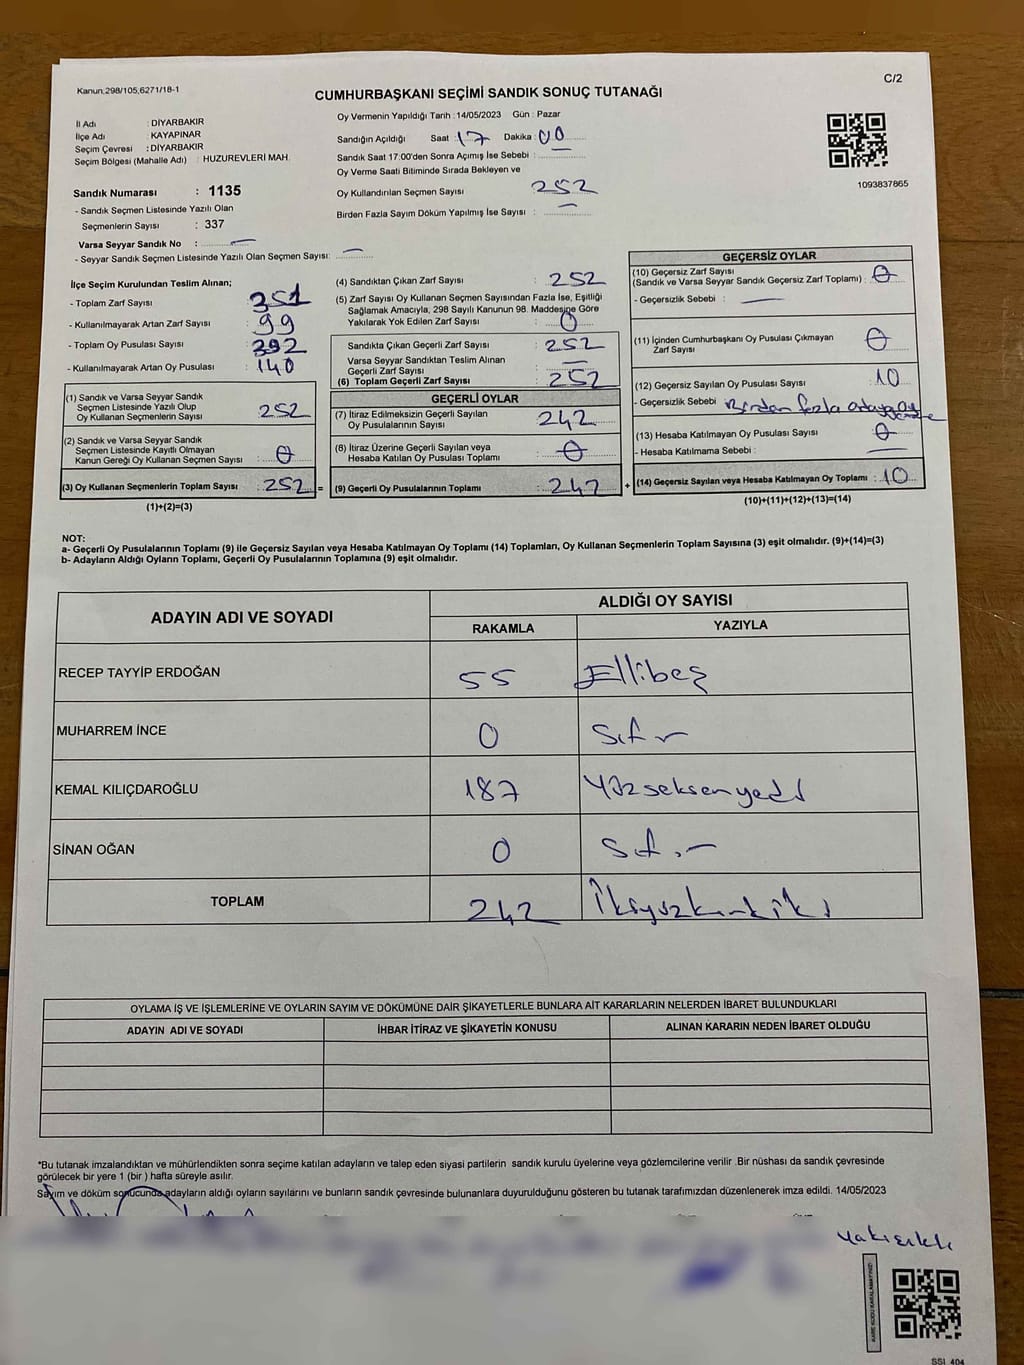 Kanun,298/105,6271/18-1
C/2
CUMHURBAŞKANI SEÇİMİ SANDIK SONUÇ TUTANAĞI
İl Adı : DİYARBAKIR
İlçe Adı : KAYAPINAR
Seçim Çevresi : DİYARBAKIR
Seçim Bölgesi (Mahalle Adı) : HUZUREVLERİ MAH.
Sandık Numarası : 1135
- Sandık Seçmen Listesinde Yazılı Olan
Seçmenlerin Sayısı : 337
Varsa Seyyar Sandık No : —
- Seyyar Sandık Seçmen Listesinde Yazılı Olan Seçmen Sayısı: —
Oy Vermenin Yapıldığı Tarih : 14/05/2023 Gün : Pazar
Sandığın Açıldığı Saat : 17 Dakika : 00
Sandık Saat 17:00'den Sonra Açımış İse Sebebi : —
Oy Verme Saati Bitiminde Sırada Bekleyen ve
Oy Kullandırılan Seçmen Sayısı : 252
Birden Fazla Sayım Döküm Yapılmış İse Sayısı : —
1093837865
İlçe Seçim Kurulundan Teslim Alınan;
- Toplam Zarf Sayısı : 351
- Kullanılmayarak Artan Zarf Sayısı : 99
- Toplam Oy Pusulası Sayısı : 392
- Kullanılmayarak Artan Oy Pusulası : 140
(1) Sandık ve Varsa Seyyar Sandık
Seçmen Listesinde Yazılı Olup
Oy Kullanan Seçmenlerin Sayısı : 252
(2) Sandık ve Varsa Seyyar Sandık
Seçmen Listesinde Kayıtlı Olmayan
Kanun Gereği Oy Kullanan Seçmen Sayısı : 0
(3) Oy Kullanan Seçmenlerin Toplam Sayısı : 252 =
(1)+(2)=(3)
(4) Sandıktan Çıkan Zarf Sayısı : 252
(5) Zarf Sayısı Oy Kullanan Seçmen Sayısından Fazla İse, Eşitliği
Sağlamak Amacıyla, 298 Sayılı Kanunun 98. Maddesine Göre
Yakılarak Yok Edilen Zarf Sayısı : 0
Sandıkta Çıkan Geçerli Zarf Sayısı : 252
Varsa Seyyar Sandıktan Teslim Alınan
Geçerli Zarf Sayısı : —
(6) Toplam Geçerli Zarf Sayısı : 252
GEÇERLİ OYLAR
(7) İtiraz Edilmeksizin Geçerli Sayılan
Oy Pusulasının Sayısı : 242
(8) İtiraz Üzerine Geçerli Sayılan veya
Hesaba Katılan Oy Pusulası Toplamı : 0
(9) Geçerli Oy Pusulalarının Toplamı : 242 +
GEÇERSİZ OYLAR
(10) Geçersiz Zarf Sayısı
(Sandık ve Varsa Seyyar Sandık Geçersiz Zarf Toplamı) : 0
- Geçersizlik Sebebi : —
(11) İçinden Cumhurbaşkanı Oy Pusulası Çıkmayan
Zarf Sayısı : 0
(12) Geçersiz Sayılan Oy Pusulası Sayısı : 10
- Geçersizlik Sebebi : Birden fazla adaya oy
(13) Hesaba Katılmayan Oy Pusulası Sayısı : 0
- Hesaba Katılmama Sebebi : —
(14) Geçersiz Sayılan veya Hesaba Katılmayan Oy Toplamı : 10
(10)+(11)+(12)+(13)=(14)
NOT:
a- Geçerli Oy Pusulalarının Toplamı (9) ile Geçersiz Sayılan veya Hesaba Katılmayan Oy Toplamı (14) Toplamları, Oy Kullanan Seçmenlerin Toplam Sayısına (3) eşit olmalıdır. (9)+(14)=(3)
b- Adayların Aldığı Oyların Toplamı, Geçerli Oy Pusulalarının Toplamına (9) eşit olmalıdır.
ADAYIN ADI VE SOYADI
ALDIĞI OY SAYISI
RAKAMLA YAZIYLA
RECEP TAYYİP ERDOĞAN 55 Ellibeş
MUHARREM İNCE 0 Sıfır
KEMAL KILIÇDAROĞLU 187 Yüzseksenyedi
SİNAN OĞAN 0 Sıfır
TOPLAM 242 İkiyüzkırkiki
OYLAMA İŞ VE İŞLEMLERİNE VE OYLARIN SAYIM VE DÖKÜMÜNE DAİR ŞİKAYETLERLE BUNLARA AİT KARARLARIN NELERDEN İBARET BULUNDUKLARI
ADAYIN ADI VE SOYADI İHBAR İTİRAZ VE ŞİKAYETİN KONUSU ALINAN KARARIN NEDEN İBARET OLDUĞU
*Bu tutanak imzalandıktan ve mühürlendikten sonra seçime katılan adayların ve talep eden siyasi partilerin sandık kurulu üyelerine veya gözlemcilerine verilir .Bir nüshası da sandık çevresinde
görülecek bir yere 1 (bir ) hafta süreyle asılır.
Sayım ve döküm sonucunda adayların aldığı oyların sayılarını ve bunların sandık çevresinde bulunanlara duyurulduğunu gösteren bu tutanak tarafımızdan düzenlenerek imza edildi. 14/05/2023
KARE KODU KARALAMAYINIZ!
SSI_404